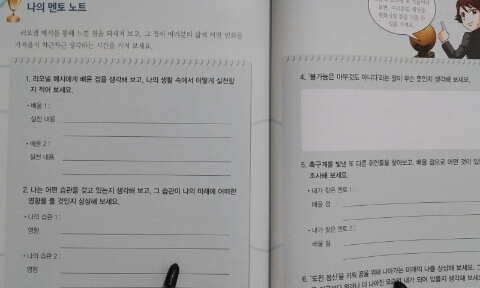 나의 멘토 노트
리오넬 메시를 통해 느낀 점을 되새겨 보고, 그 점이 여러분의 삶에 어떤 변화를
가져올지 차근차근 생각하는 시간을 가져 보세요.
1. 리오넬 메시에게 배운 점을 생각해 보고, 나의 생활 속에서 어떻게 실천할
지 적어 보세요.
• 배움 1 :
실천 내용
• 배움 2 :
실천 내용
2. 나는 어떤 습관을 갖고 있는지 생각해 보고, 그 습관이 나의 미래에 어떠한
영향을 줄 것인지 상상해 보세요.
• 나의 습관 1 :
영향
• 나의 습관 2 :
영향
4. '불가능은 아무것도 아니다'라는 말이 무슨 뜻인지 생각해 보세요.
5. 축구계를 빛낸 또 다른 위인들을 찾아보고, 배울 점으로 어떤 것이 있
조사해 보세요.
• 내가 찾은 멘토 1 :
배울 점
• 내가 찾은 멘토 2 :
배울 점
6. '도전 정신'을 키워 꿈을 위해 나아가는 미래의 나를 상상해 보세요. 그
얼마나 더 나아진 모습의 내가 되어 있을지 생각해 보